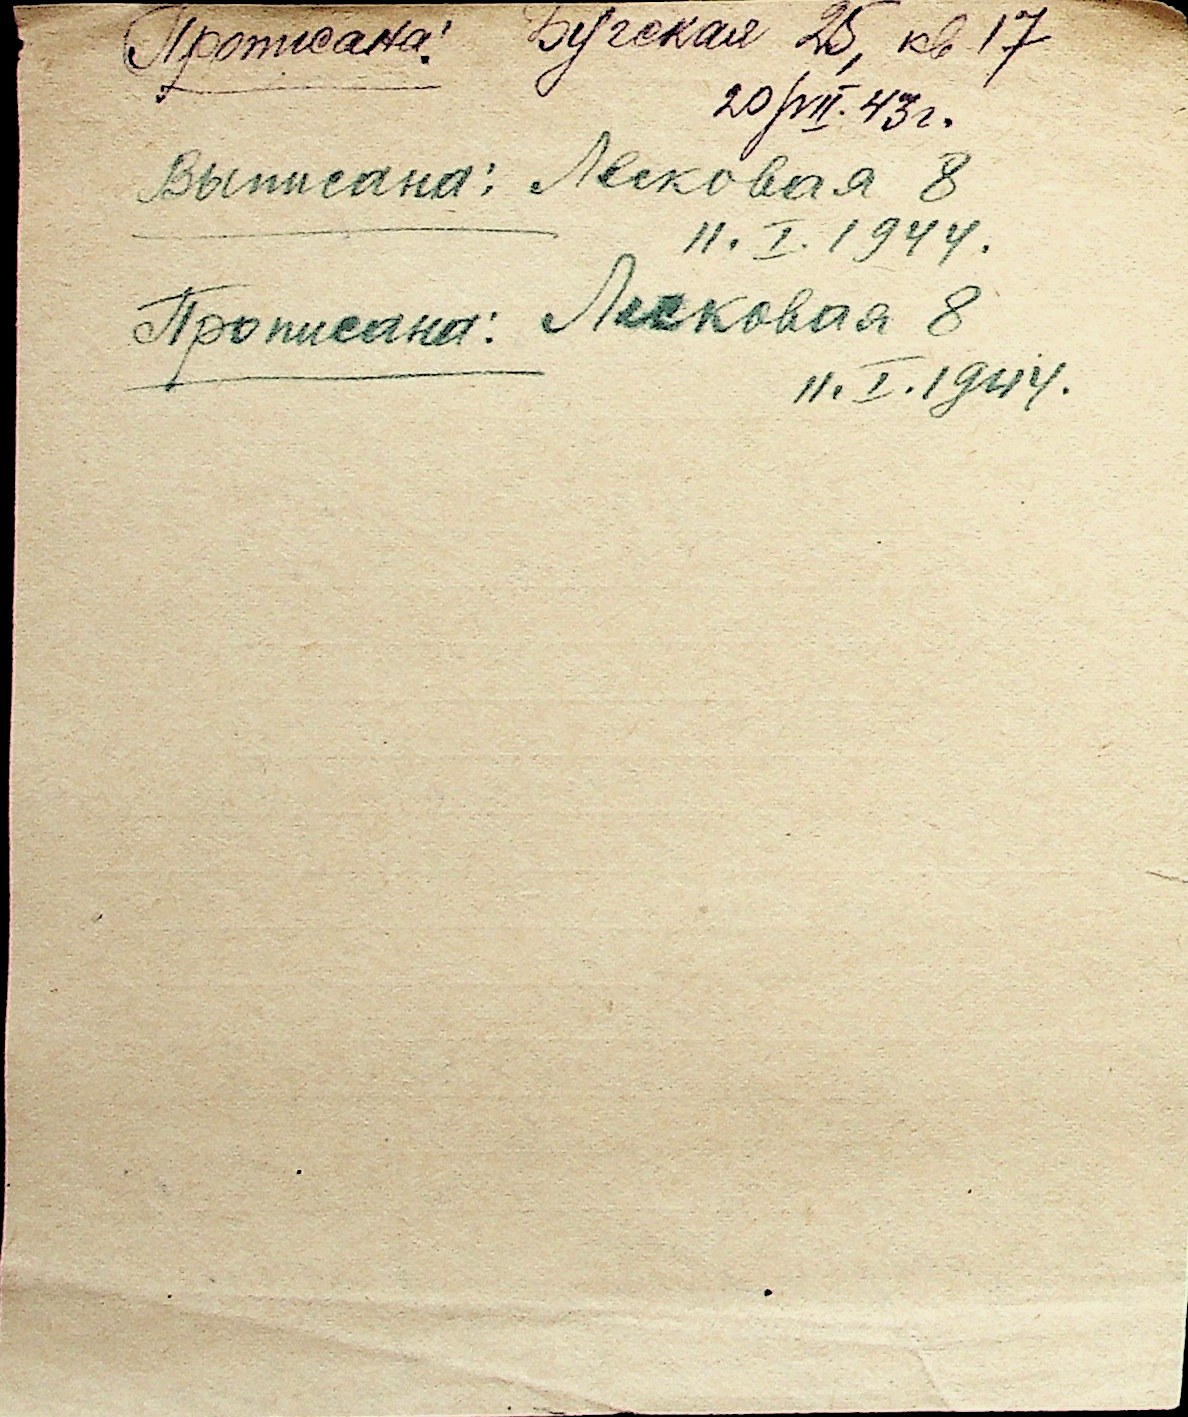 Прописана: Бугская 25, кв 17
20/VII. 43г.
Выписана: Лесковая 8
11. I. 1944.
Прописана: Лесковая 8
11. I. 1944.